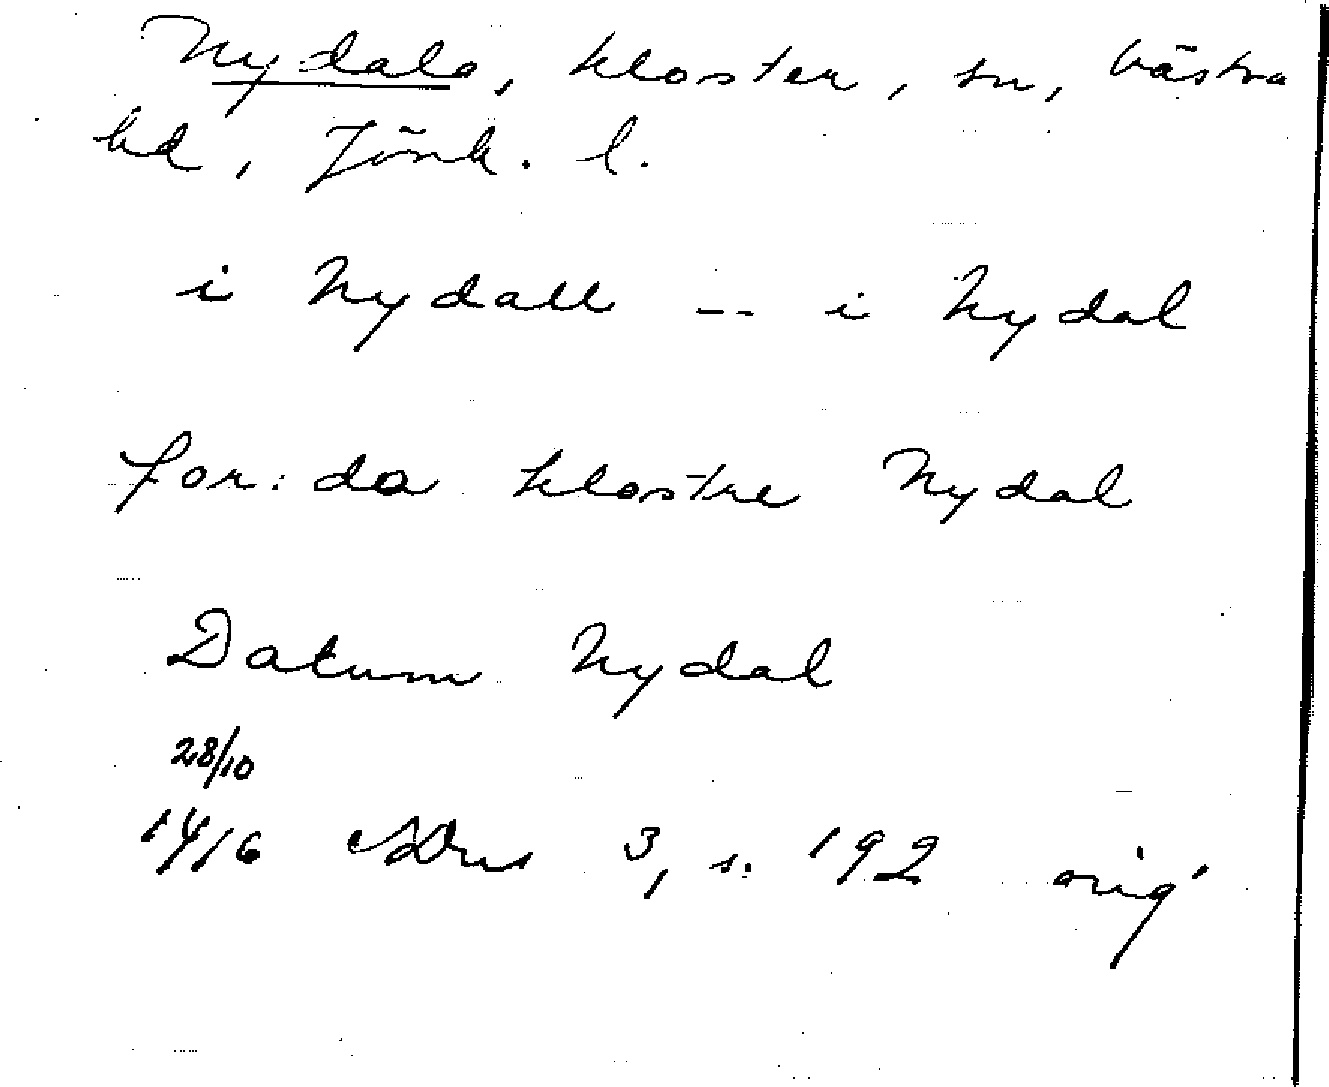 Nydala, kloster, sn, Västra
hd, Jönk. l.
i Nydall -- i Nydal
for:da klostre Nydal
Datum Nydal
28/10
1416 SDns 3, s. 192 orig